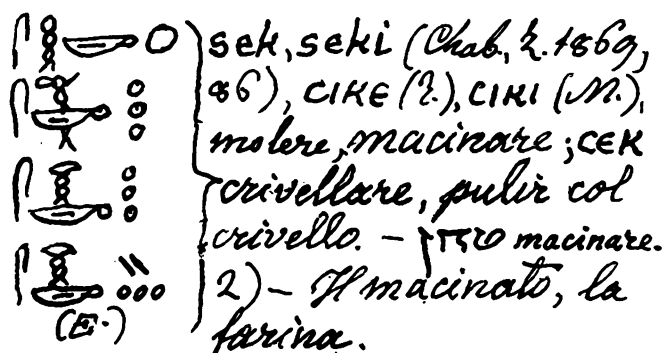 sek, seki (Chab., Z. 1869,
86), ⲥⲓⲕⲉ (T.), ⲥⲓⲕⲓ (M.),
molere, macinare; ⲥⲉⲕ
crivellare, pulir col
crivello. — שחק macinare.
2) — Il macinato, la
farina.
(E.)